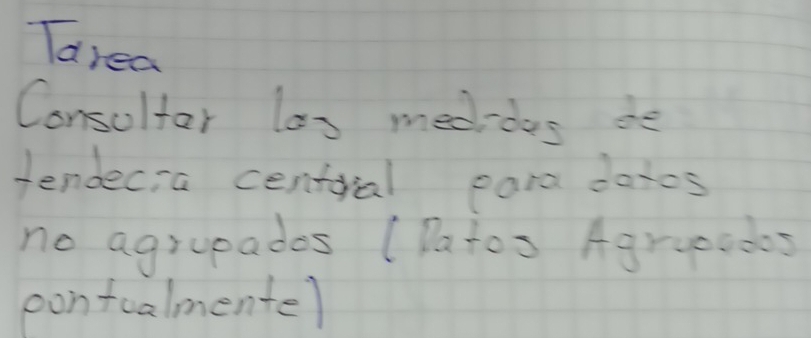 Tarea
Consultar las medidas de
tendecia central para datos
no agrupados (Datos Agrupados
pontualmente)